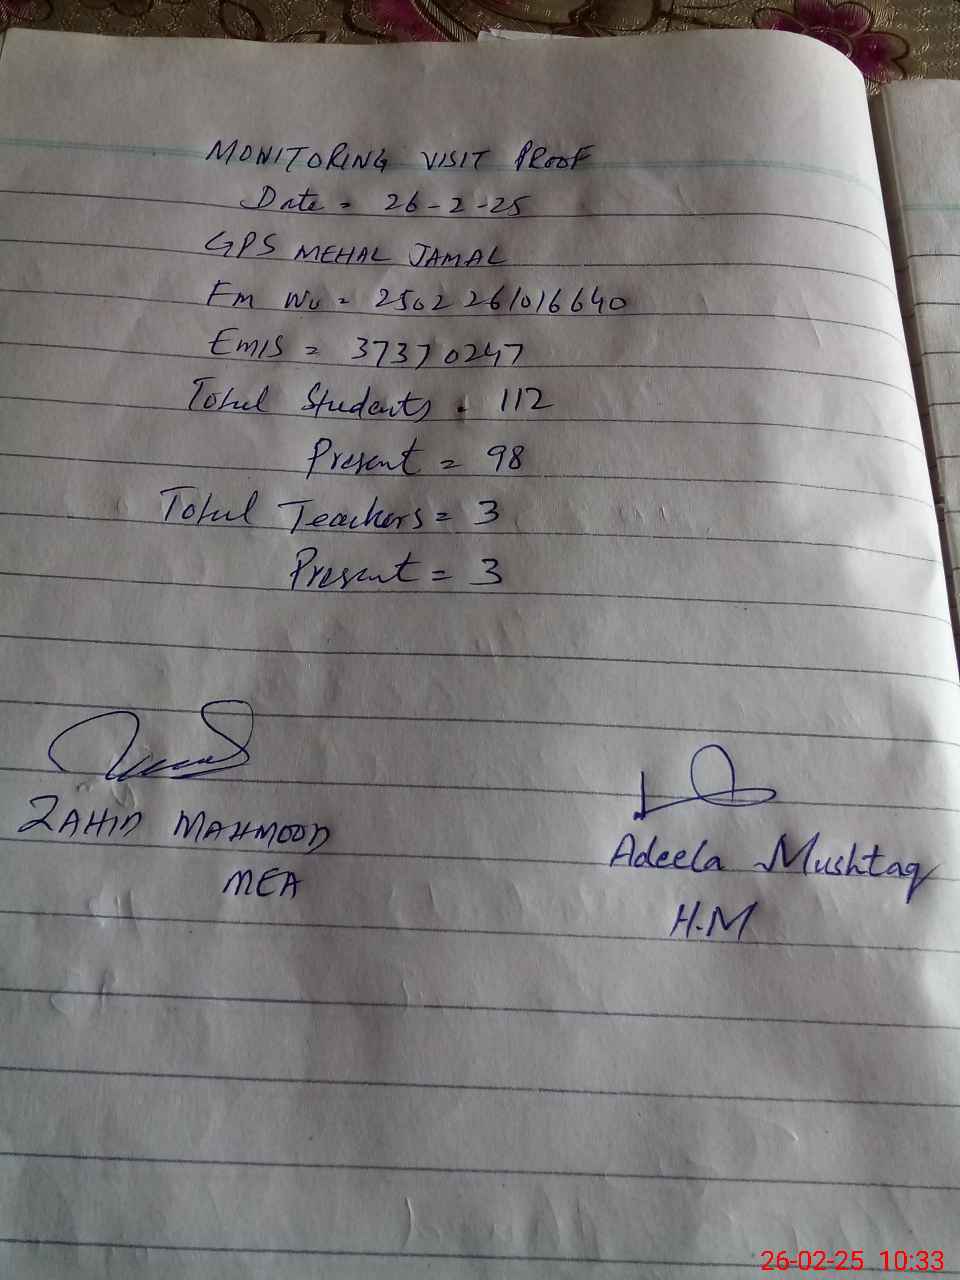 MONITORING VISIT PROOF
Date = 26-2-25
GPS MEHAL JAMAL
Fm No = 2502261016640
Emis = 37370247
Total Students = 112
Present = 98
Total Teachers = 3
Present = 3
ZAHID MAHMOOD
MEA
Adeela Mushtaq
H.M
26-02-25 10:33